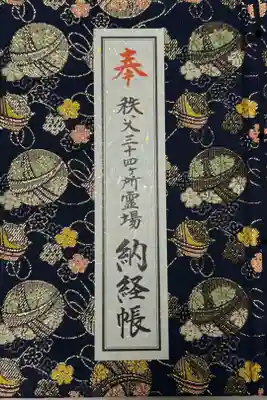 奉
秩父三十四ヶ所霊場
納経帳